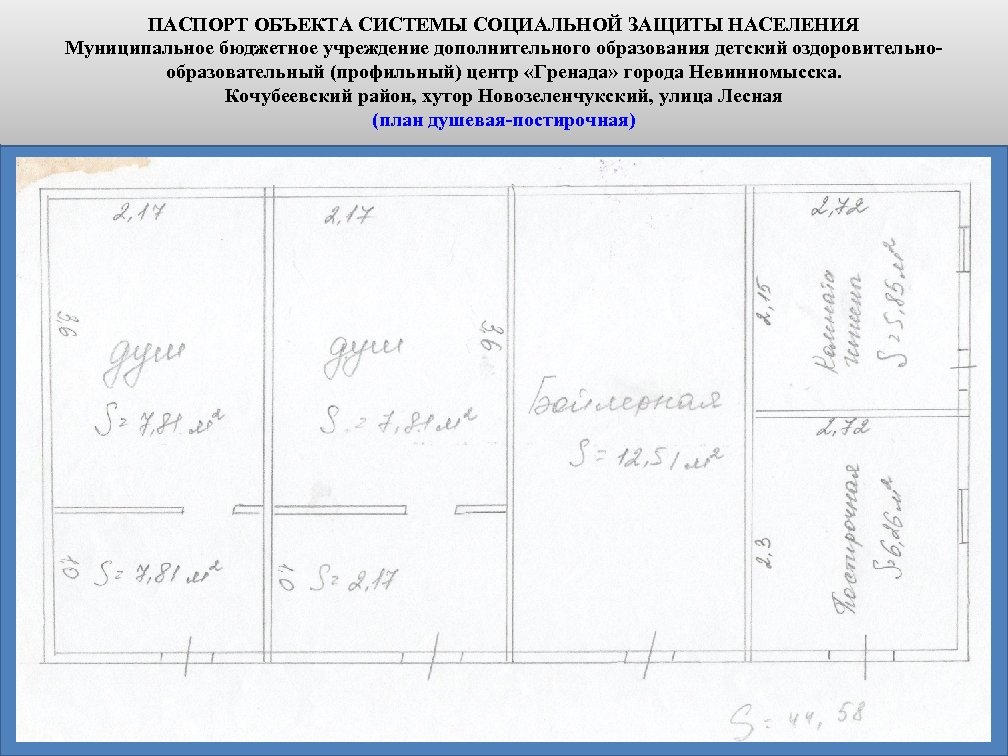 ПАСПОРТ ОБЪЕКТА СИСТЕМЫ СОЦИАЛЬНОЙ ЗАЩИТЫ НАСЕЛЕНИЯ
Муниципальное бюджетное учреждение дополнительного образования детский оздоровительно-
образовательный (профильный) центр «Гренада» города Невинномысска.
Кочубеевский район, хутор Новозеленчукский, улица Лесная
(план душевая-постирочная)
2,17
2,17
2,72
3,6
душ
S = 7,81 м²
3,6
душ
S = 7,81 м²
Бойлерная
S = 12,51 м²
2,15
Комната
гигиены
S = 5,85 м²
2,72
1,0
S = 7,81 м²
1,0
S = 2,17
2,3
Постирочная
S = 6,26 м²
S = 44,58